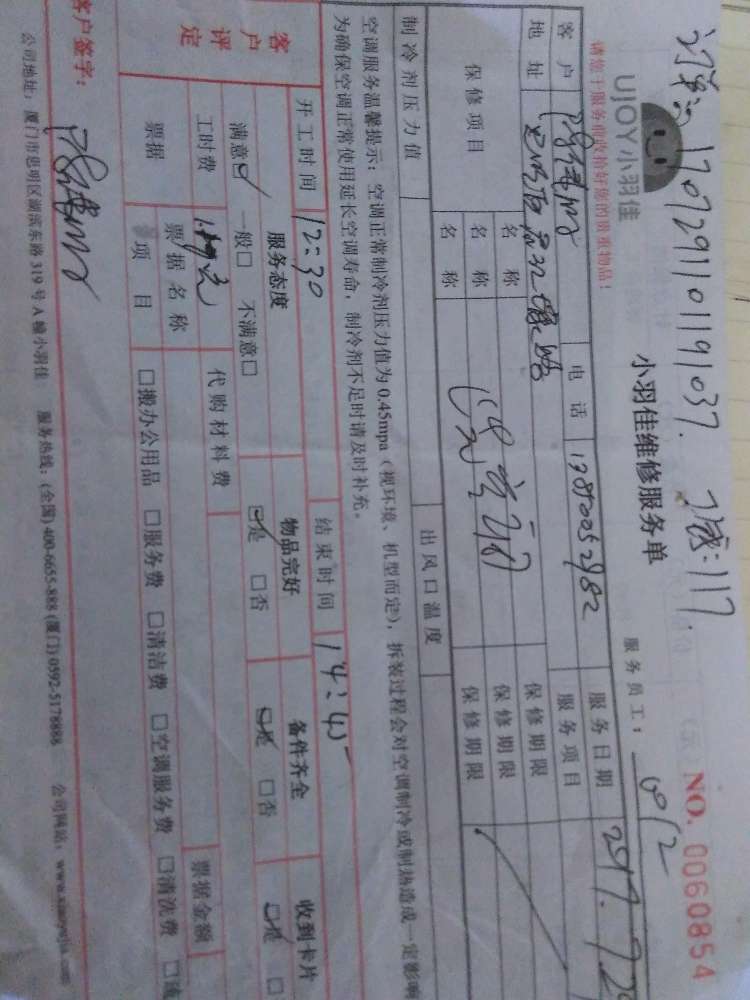 1707291101191037.
117
NO. 0060854
UJOY小羽佳
小羽佳维修服务单
服务员工:
请您于服务前收拾好您的贵重物品!
客户 电话 13850052982 服务日期 2017.7.2
地址 服务项目
保修项目 名称 保修期限
名称 保修期限
名称 保修期限
制冷剂压力值 出风口温度
空调服务温馨提示:空调正常制冷剂压力值为0.45mpa(视环境、机型而定),拆装过程会对空调制冷或制热造成一定影响
为确保空调正常使用延长空调寿命,制冷剂不足时请及时补充。
开工时间 12:30 结束时间 14:45
客户评定 服务态度 物品完好 备件齐全 收到卡片
满意☑ 一般□ 不满意□ ☑是 □否 ☑是 □否 ☑是 □
工时费 代购材料费 票据金额
票据 票据名称
项目 □搬办公用品 □服务费 □清洁费 □空调服务费 □清洗费
客户签字:
公司地址:厦门市思明区湖滨东路319号A幢小羽佳 服务热线:(全国)400-6655-888 (厦门)0592-5178888 公司网站:www.xiaoyujia.com